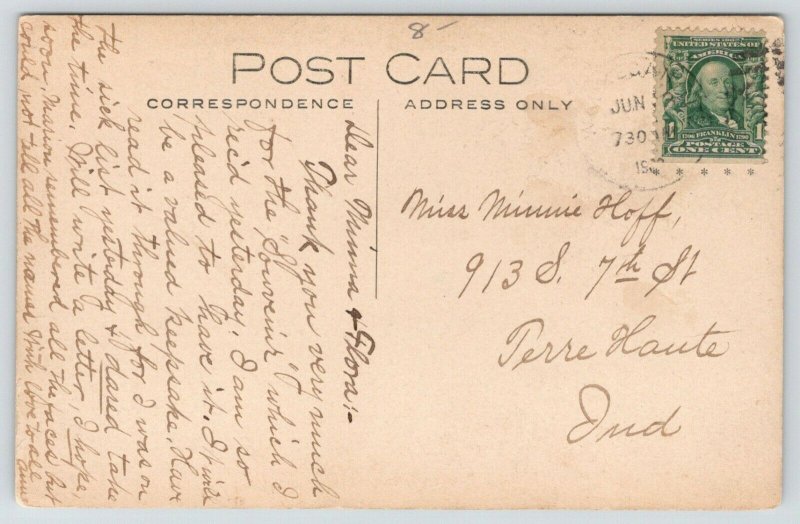 8-
POST CARD
CORRESPONDENCE
ADDRESS ONLY
SERIES 1902
UNITED STATES OF
AMERICA
1706 FRANKLIN 1790
POSTAGE
1 ONE CENT 1
JUN
730
19
Miss Minnie Hoff,
913 S. 7th St
Terre Haute
Ind
Dear Minna & Flora:-
Thank you very much
for the "Souvenir" which I
rec'd yesterday. I am so
pleased to have it. It will
be a valued keepsake. Have
read it through for I was on
the sick list yesterday & dared take
the time. Will write a letter, I hope,
soon. Marion remembered all the faces but
could not tell all the names. With love to all